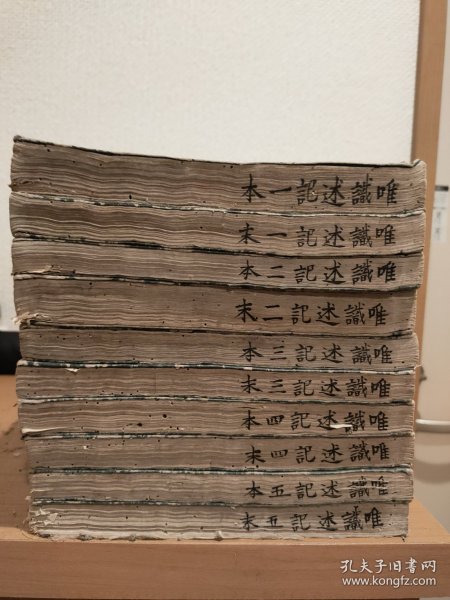 唯識述記一本
唯識述記一末
唯識述記二本
唯識述記二末
唯識述記三本
唯識述記三末
唯識述記四本
唯識述記四末
唯識述記五本
唯識述記五末
孔夫子旧书网
www.kongfz.com